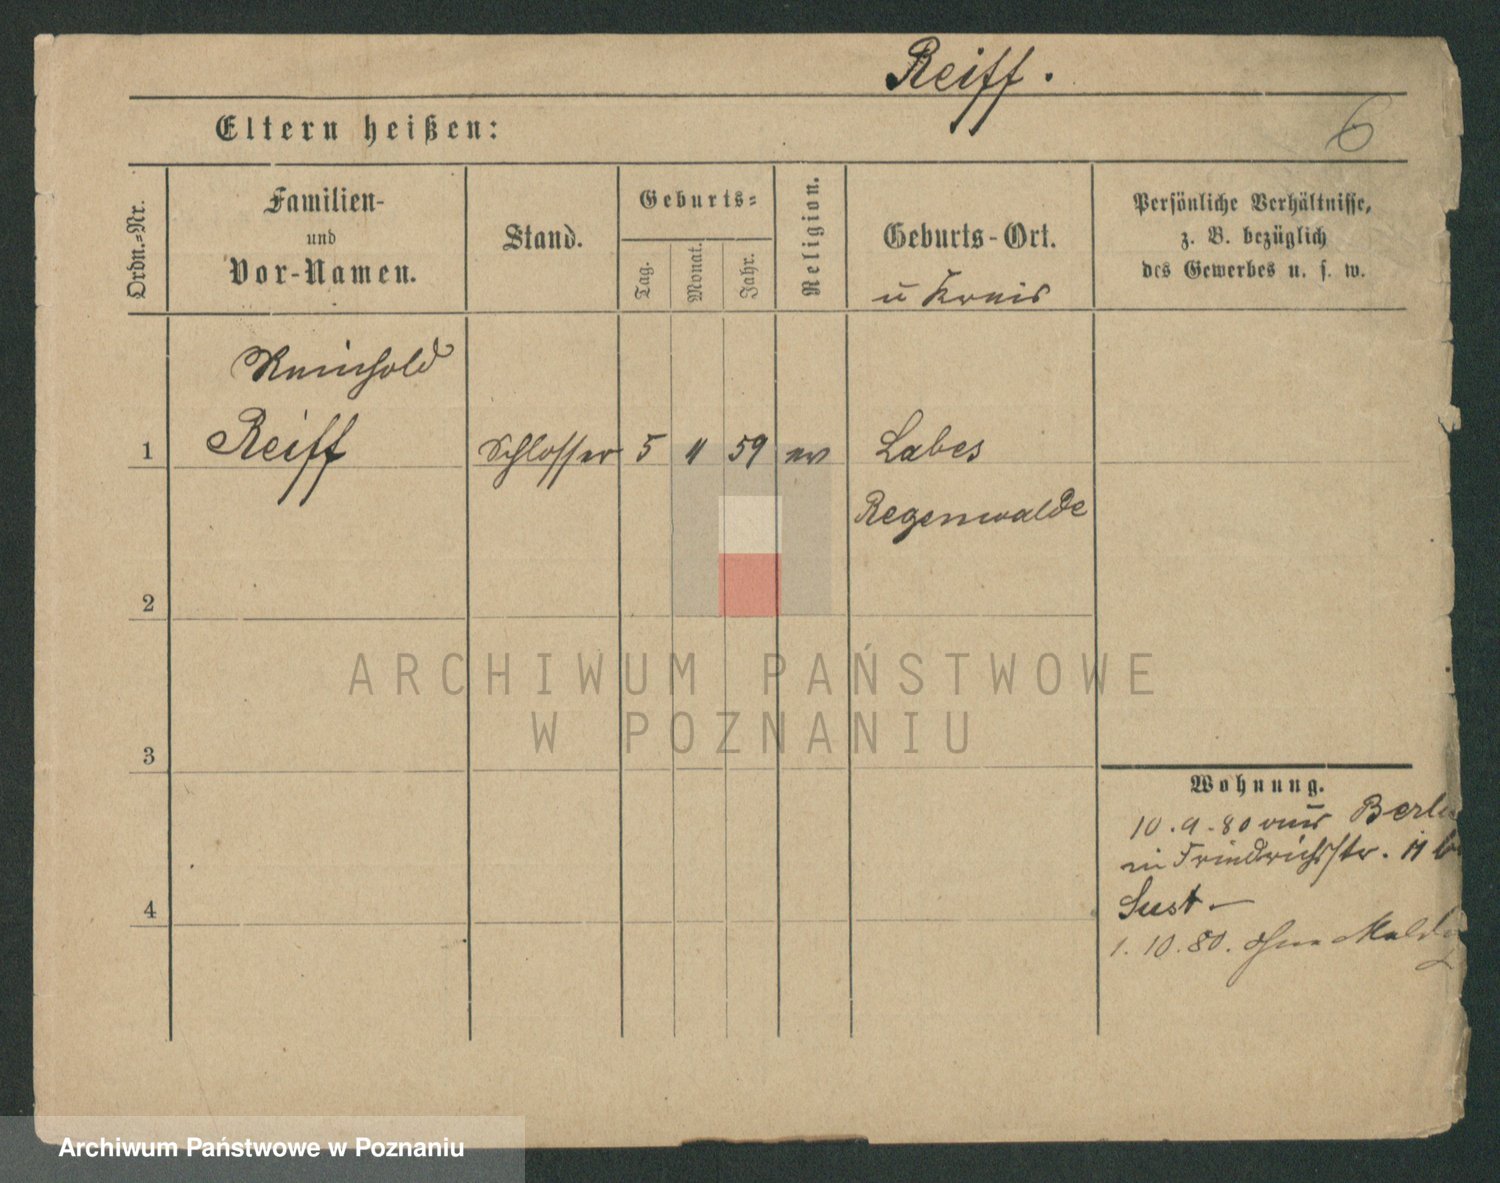 Reiff.
6
Eltern heißen:
Ordn.-Nr.
Familien-
und
Vor-Namen.
Stand.
Geburts-
Tag.
Monat.
Jahr.
Religion.
Geburts-Ort.
u Kreis
Persönliche Verhältnisse,
z. B. bezüglich
des Gewerbes u. s. w.
Reinhold
1 Reiff Schlosser 5 11 59 ev Labes
Regenwalde
2
3
4
Wohnung.
10.9.80 aus Berlin
in Friedrichstr. 11
Lust
1.10.80. ohne
ARCHIWUM PAŃSTWOWE
W POZNANIU
Archiwum Państwowe w Poznaniu